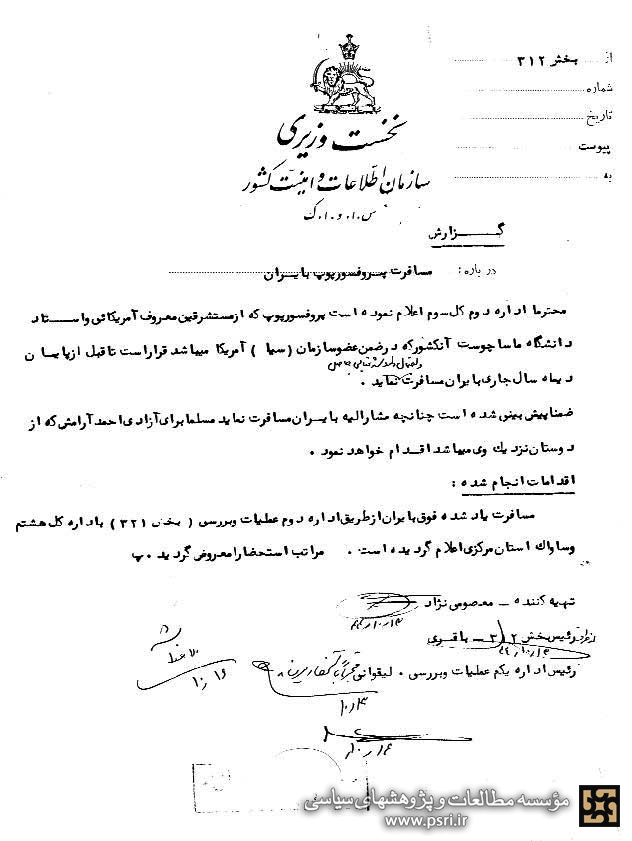 از بخش ۳۱۲
شماره
تاریخ
پیوست
به
نخست وزیری
سازمان اطلاعات و امنیت کشور
س.ا.و.ا.ک
گزارش
درباره : مسافرت پروفسور پوپ بایران
محترما اداره دوم کل سوم اعلام نموده است پروفسور پوپ که از مستشرقین معروف آمریکائی و استاد
دانشگاه ماساچوست آنکشور که در ضمن عضو سازمان ( سیا ) آمریکا میباشد قرار است تا قبل از پایان
دیماه سال جاری بایران مسافرت نماید .
ضمنا پیش بینی شده است چنانچه مشارالیه بایران مسافرت نماید مسلما برای آزادی احمد آرامش که از
دوستان نزدیک وی میباشد اقدام خواهد نمود .
اقدامات انجام شده :
مسافرت یاد شده فوق بایران از طریق اداره دوم عملیات و بررسی ( بخش ۳۲۱ ) باداره کل هشتم
و ساواک استان مرکزی اعلام گردیده است . مراتب استحضارا معروض گردید . پ
تهیه کننده - معصومی نژاد
رئیس بخش ۳۱۲ - باقری
رئیس اداره یکم عملیات و بررسی . لیقوانی
ملاحظه شد
۱۰/۱۶
۱۰/۱۴
مؤسسه مطالعات و پژوهشهای سیاسی
www.psri.ir